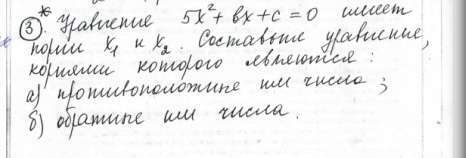 3*. Уравнение 5x² + bx + c = 0 имеет
корни x₁ и x₂. Составьте уравнение,
корнями которого являются:
а) противоположные им числа;
б) обратные им числа.